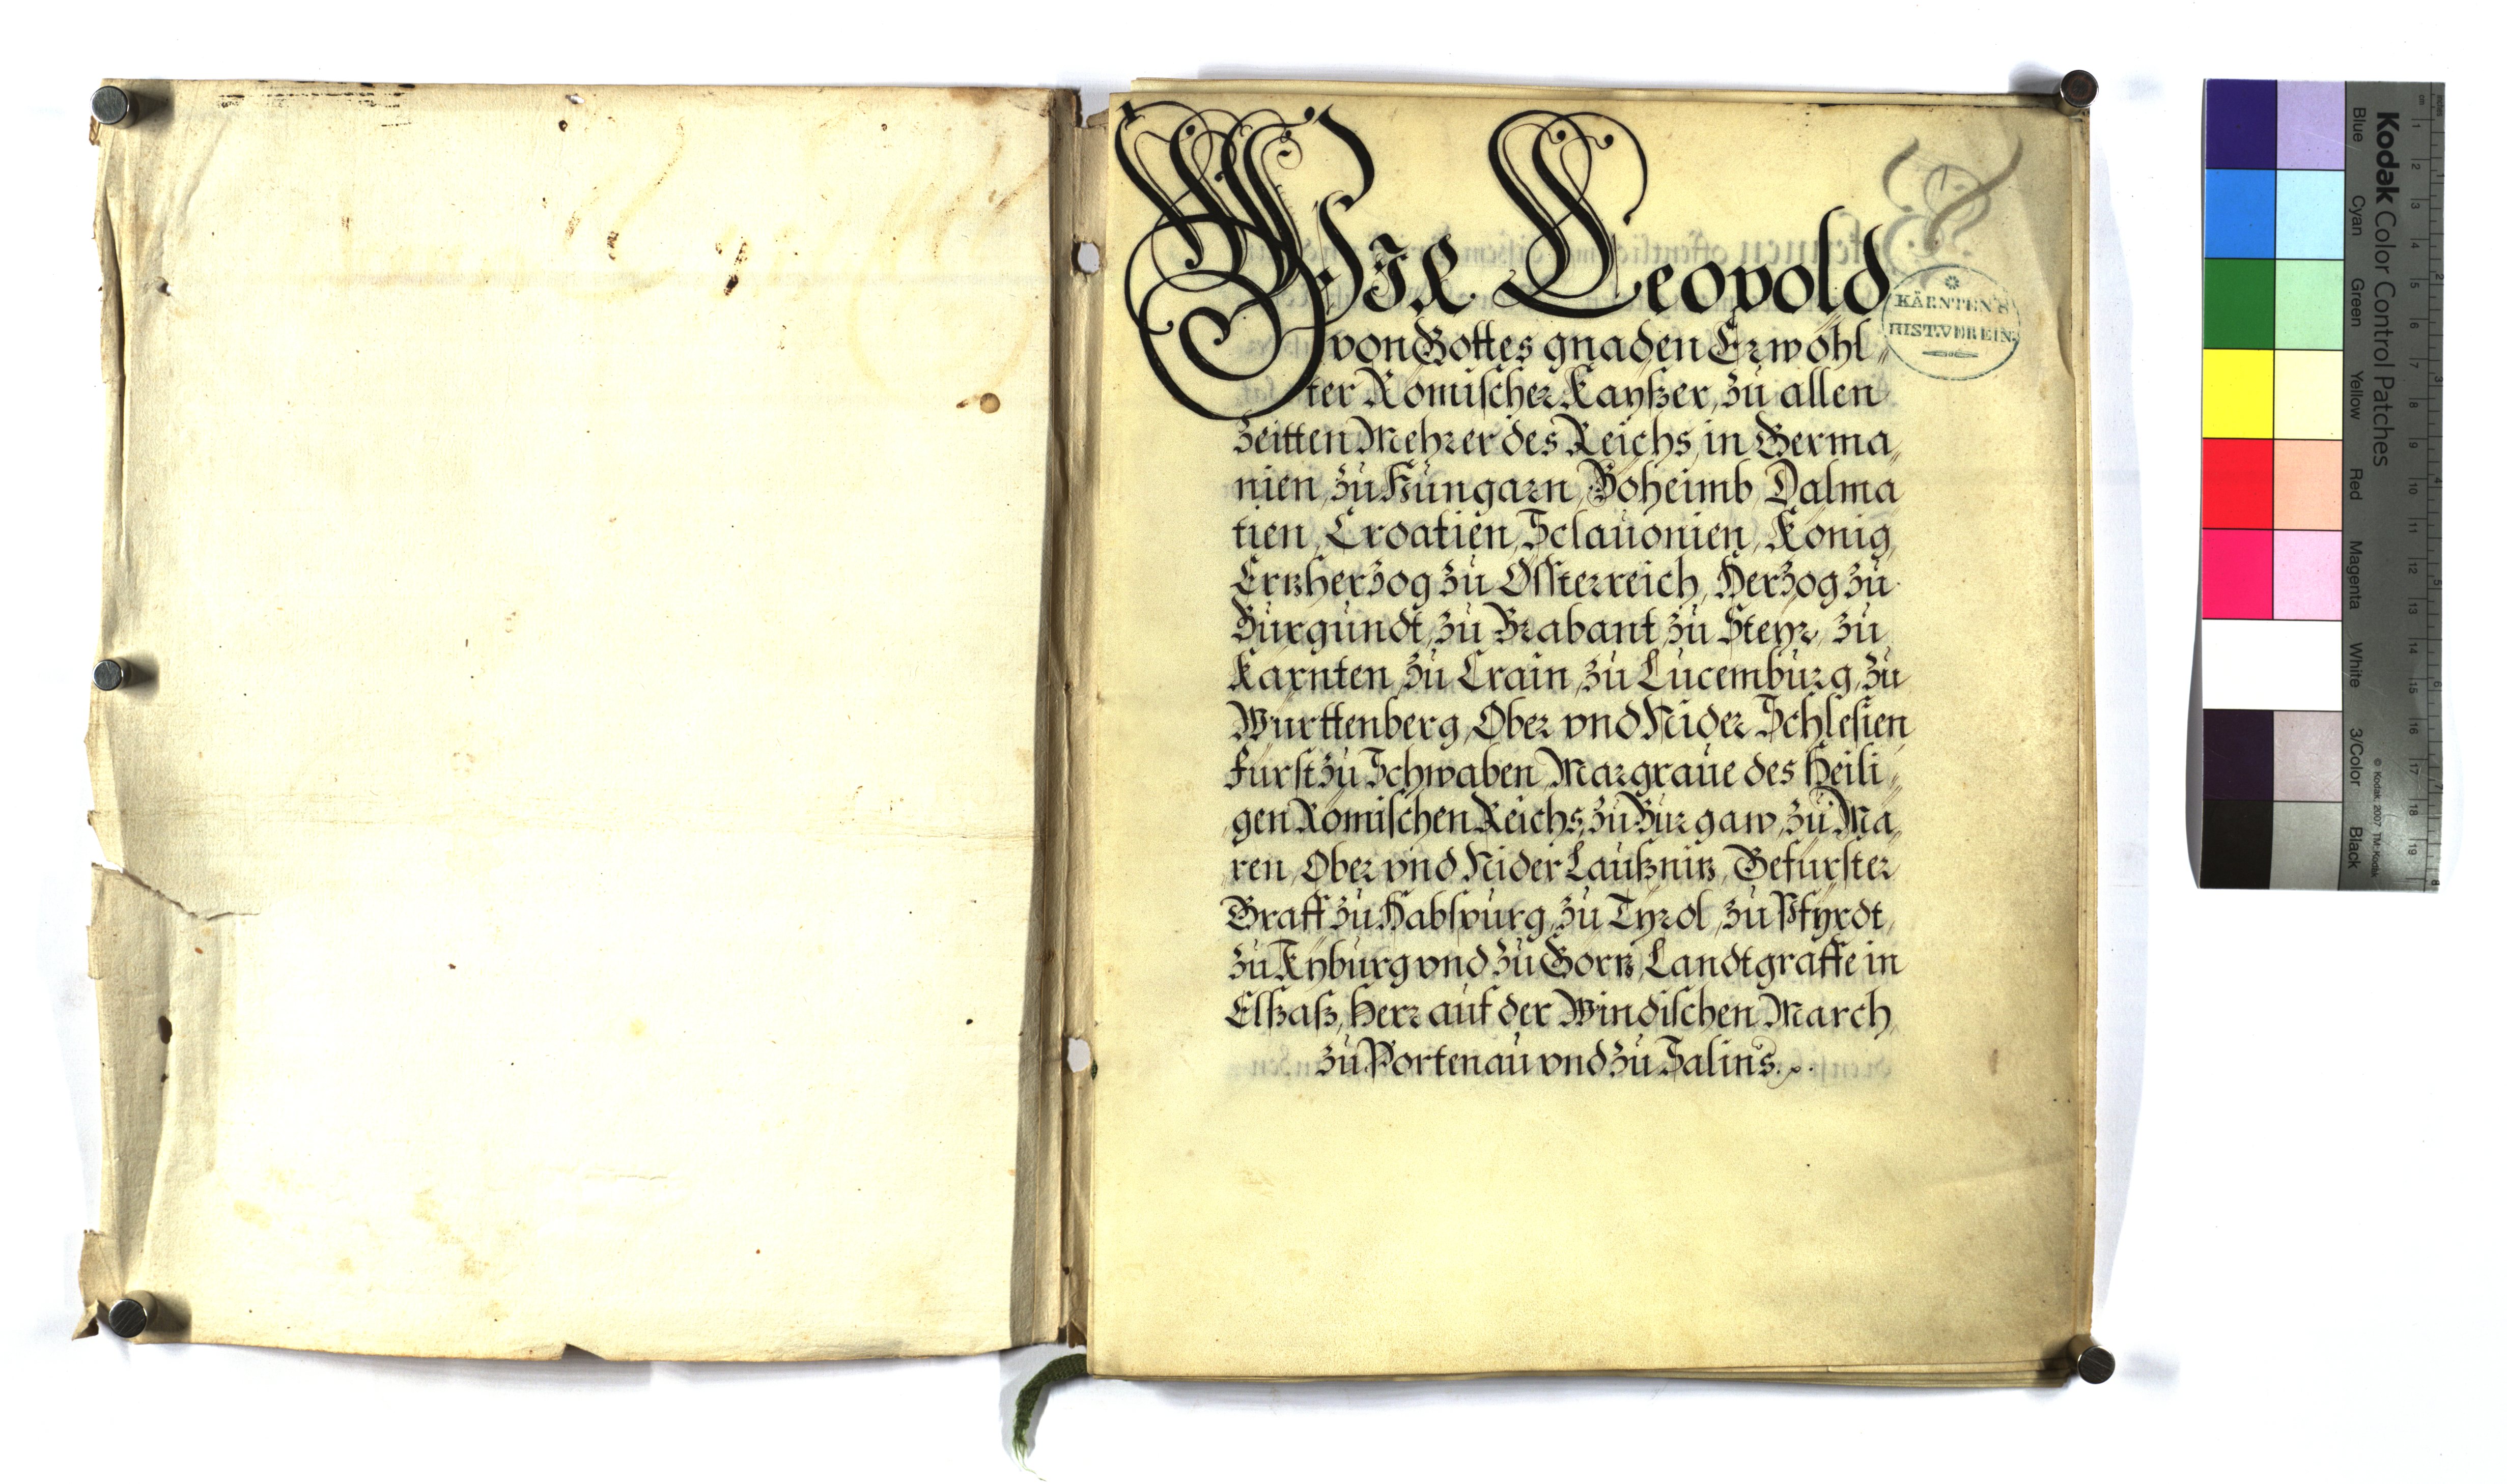 Wir Leopold
von Gottes gnaden Erwöhl„
ter Römischer Kayßer, zu allen
Zeitten Mehrer des Reichs, in Germa„
nien, zu Hungarn, Böheimb, Dalma
tien, Croatien, Sclauonien, König,
Ertzherzog zu Össterreich, Herzog zu
Burgundt, zu Brabant, zu Steyr, zu
Kärnten, zu Crain, zu Lucemburg, zu
Württenberg, Ober vnd Nider Schlesien,
Fürst zu Schwaben, Margraue des Heili„
gen Römischen Reichs, zu Burgaw, zu Mä„
ren, Ober vnd Nider Laußnitz, Gefürster
Graff zu Habspurg, zu Tyrol, zu Pfyrdt,
zu Kyburg vnd zu Görtz, Landtgraffe in
Elßaß, Herr auf der Windischen March,
zu Portenau vnd zu Salins.
KÄRNTEN'S
HIST.VEREIN.
Kodak Color Control Patches
Blue Cyan Green Yellow Red Magenta White 3/Color Black
© Kodak, 2007 TM: Kodak
cm 1 2 3 4 5 6 7 8 9 10 11 12 13 14 15 16 17 18 19
inches 1 2 3 4 5 6 7 8